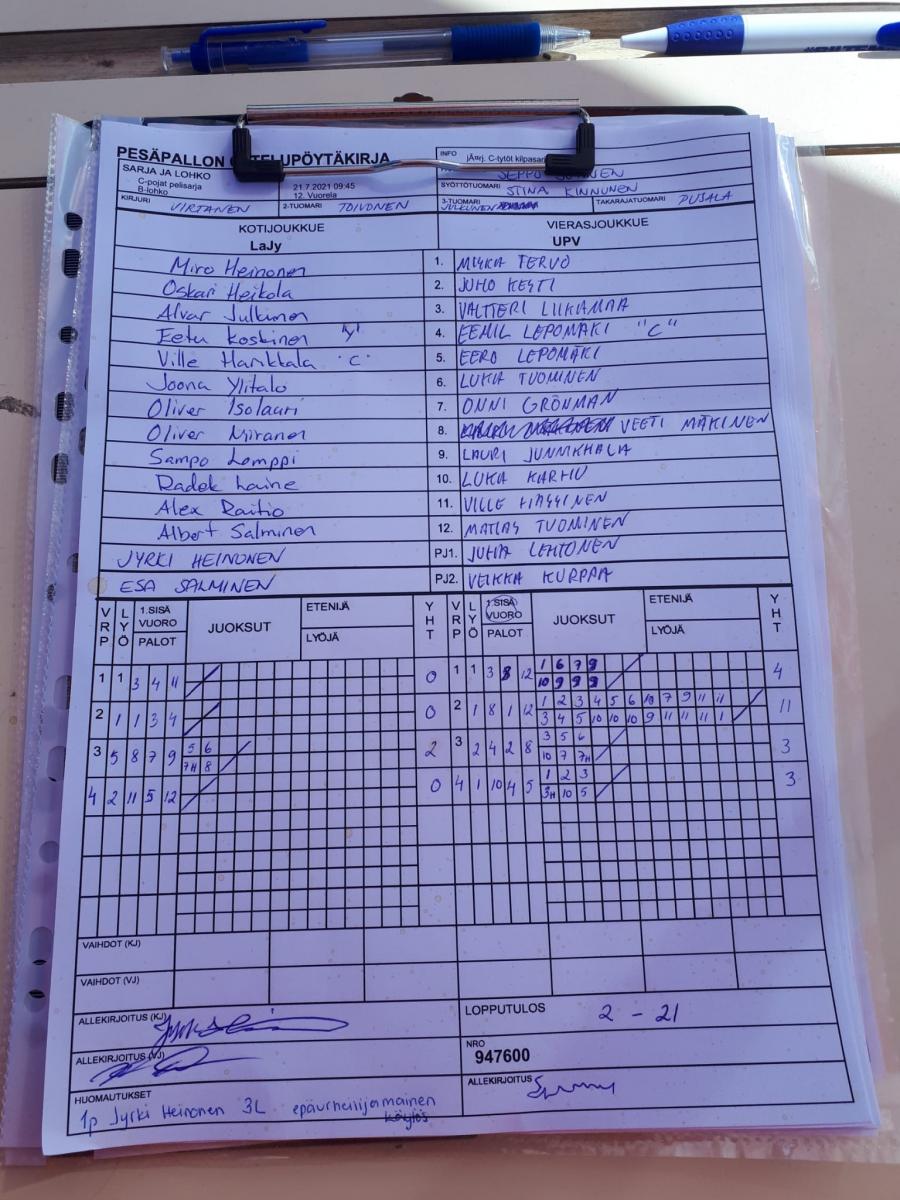 PESÄPALLON OTTELUPÖYTÄKIRJA
INFO jÄnj. C-tytöt kilpasarj
SARJA JA LOHKO
C-pojat pelisarja
B-lohko
21.7.2021 09:45
12. Vuorela
SEPPO
SYÖTTÖTUOMARI STINA KINNUNEN
KIRJURI VIRTANEN 2-TUOMARI TOIVONEN 3-TUOMARI JULKUNEN TAKARAJATUOMARI PUSALA
KOTIJOUKKUE VIERASJOUKKUE
LaJy UPV
Miro Heinonen 1. MIIKA TERVO
Oskari Heikola 2. JUHO KESTI
Alvar Julkunen 3. VALTTERI LIUKAMAA
Eetu Koskinen 4. EEMIL LEPOMÄKI "C"
Ville Harikkala "C" 5. EERO LEPOMÄKI
Joona Ylitalo 6. LUKA TUOMINEN
Oliver Isolauri 7. ONNI GRÖNMAN
Oliver Niranen 8. VEETI MÄKINEN
Sampo Lomppi 9. LAURI
Radek Laine 10. LUKA KARHU
Alex Raitio 11. VILLE
Albert Salminen 12. MATIAS TUOMINEN
JYRKI HEINONEN PJ1. JUHA LEHTONEN
ESA SALMINEN PJ2. VEIKKA KURPPA
VRP LYÖ 1.SISÄ VUORO PALOT JUOKSUT ETENIJÄ LYÖJÄ YHT VRP LYÖ 1.SISÄ VUORO PALOT JUOKSUT ETENIJÄ LYÖJÄ YHT
1 1 3 4 11 0 1 1 3 8 12 1 6 7 9 4
10 9 9 9
2 1 1 3 4 0 2 1 8 1 12 1 2 3 4 5 6 10 7 9 11 11 11
3 4 5 10 10 10 9 11 11 11 1
3 5 8 7 9 5 6 2 3 2 4 2 8 3 5 6 3
7H 8 10 7 7H
4 2 11 5 12 0 4 1 10 4 5 1 2 3 3
3H 10 5
VAIHDOT (KJ)
VAIHDOT (VJ)
ALLEKIRJOITUS (KJ) LOPPUTULOS 2 - 21
ALLEKIRJOITUS (VJ) NRO
947600
HUOMAUTUKSET ALLEKIRJOITUS
1p Jyrki Heinonen 3L epäurheilijamainen
käytös